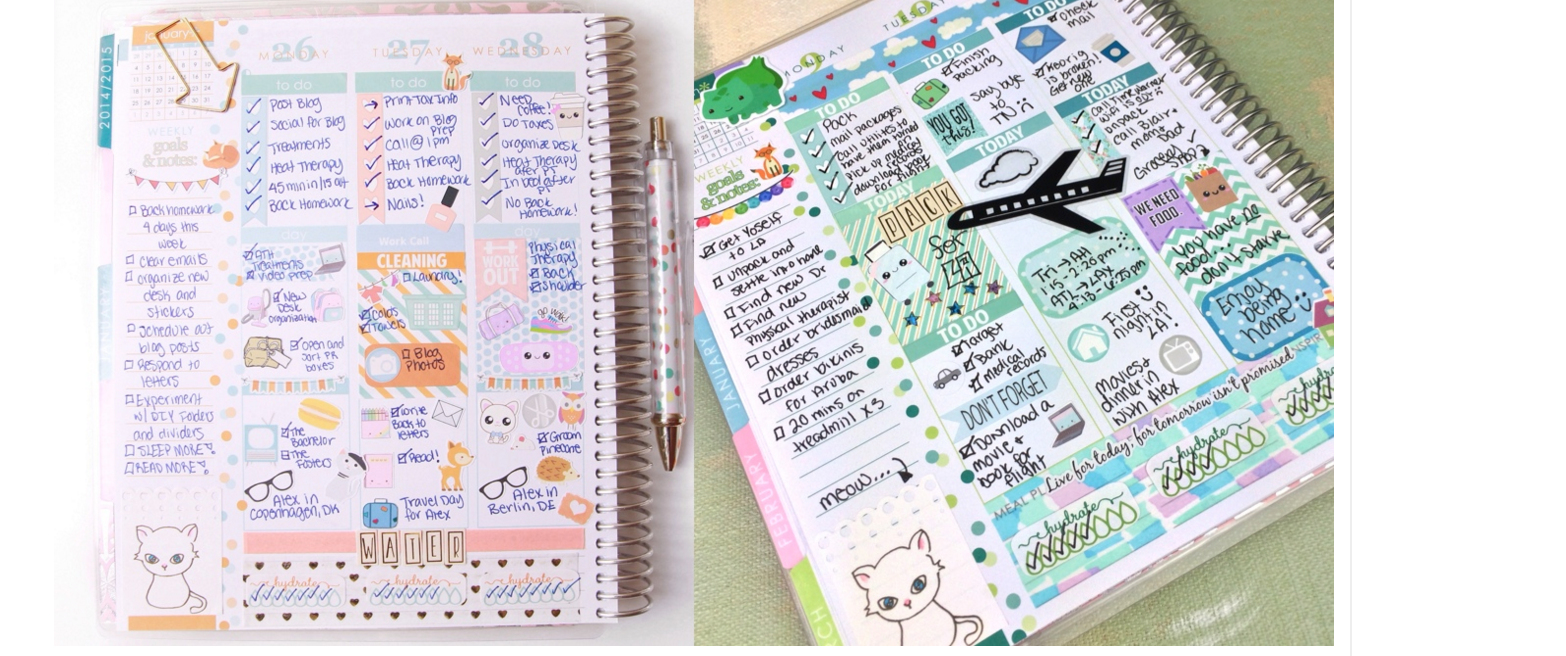 january
2014/2015
WEEKLY
goals
& notes:
Back homework
4 days this
week
clear emails
organize new
desk and
stickers
Schedule out
blog posts
Respond to
letters
Experiment
w/ DIY Folders
and dividers
SLEEP MORE
READ MORE
26
MONDAY
to do
Post Blog
Social for Blog
Treatments
Heat Therapy
45 min in
Back Homework
day
Treatments
Video prep
New
Desk
organization
Open and
sort PR
boxes
The
Bachelor
The
Fosters
Alex in
Copenhagen, DK
27
TUESDAY
to do
Print Tax Info
Work on Blog
Prep
Call @ 1pm
Heat Therapy
Back Homework
Nails!
Work Call
CLEANING
Laundry!
Colors
Towels
Blog
Photos
Write
Back to
letters
Read!
Travel Day
for Alex
28
WEDNESDAY
to do
Need
Coffee!
Do Taxes
Organize Desk
Heat Therapy
after PT
In bed after
PT
No Back
Homework!
day
WORK
OUT
Physical
Therapy
Back
Shoulder
go walk!
Groom
Alex in
Berlin, DE
WATER
hydrate
hydrate
hydrate
WEEKLY
goals
& notes:
Get Yoself
to LA
unpack and
settle into home
Find new Dr
Find new
Physical therapist
order bridesmaid
dresses
order bikinis
for Aruba
20 mins on
treadmill x3
meow...
JANUARY
FEBRUARY
RCH
MONDAY
TO DO
Pack
mail packages
Call utilities to
have them turned
pick up medical
records
download
for flight
TODAY
PACK
for
LA
TO DO
Target
Bank
Medical
records
DON'T FORGET
Download a
movie +
book for
flight
TUESDAY
TO DO
Finish
Packing
YOU GOT
this!
Say bye
to
TN
TODAY
Tri → Atl
1:15 - 2:20 pm
ATL → LAX
4:13 - 6:75 pm
First
night in
LA!
Make
dinner in
with Alex
TO DO
Check
mail
Keurig
is broken!
Get new
one
TODAY
Call Time Warner
wifi is out
unpack
call Blair +
mom +
Dad
Grocery
Shop?
WE NEED
FOOD.
You have no
food... don't starve
Enjoy
being
home
MEAL PL
Live for today, for tomorrow isn't promised
hydrate
hydrate
hydra